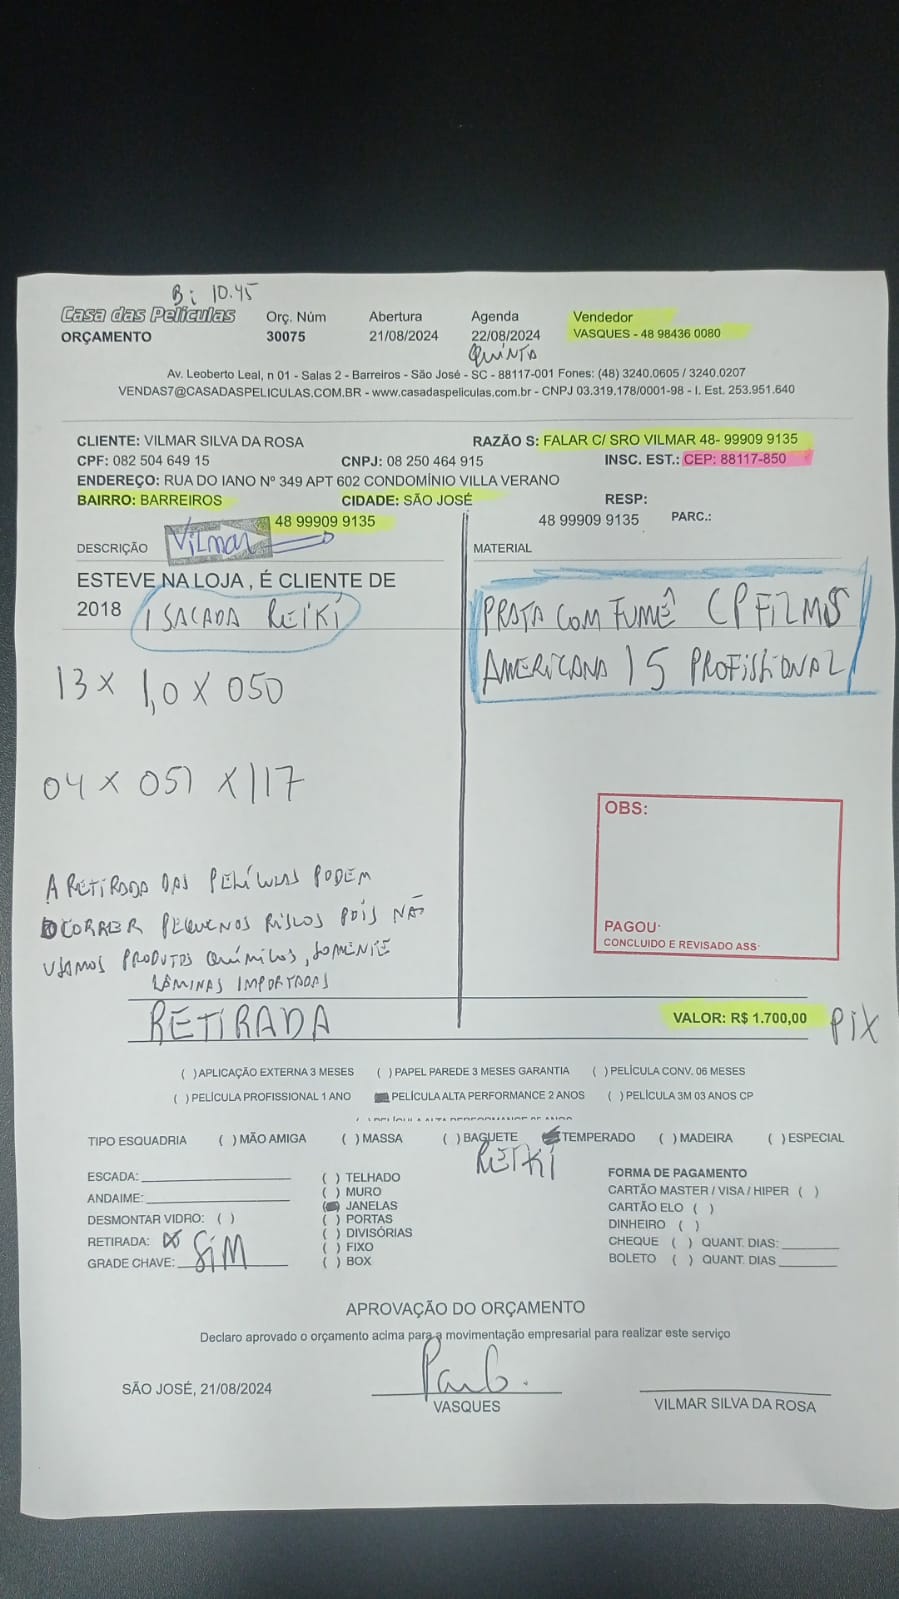 B: 10.45
Casa das Películas
ORÇAMENTO
Orç. Núm
30075
Abertura
21/08/2024
Agenda
22/08/2024
QUINTA
Vendedor
VASQUES - 48 98436 0080
Av. Leoberto Leal, n 01 - Salas 2 - Barreiros - São José - SC - 88117-001 Fones: (48) 3240.0605 / 3240.0207
VENDAS7@CASADASPELICULAS.COM.BR - www.casadaspeliculas.com.br - CNPJ 03.319.178/0001-98 - I. Est. 253.951.640
CLIENTE: VILMAR SILVA DA ROSA
RAZÃO S: FALAR C/ SRO VILMAR 48- 99909 9135
CPF: 082 504 649 15
CNPJ: 08 250 464 915
INSC. EST.: CEP: 88117-850
ENDEREÇO: RUA DO IANO Nº 349 APT 602 CONDOMÍNIO VILLA VERANO
BAIRRO: BARREIROS
CIDADE: SÃO JOSÉ
RESP:
48 99909 9135
48 99909 9135
PARC.:
DESCRIÇÃO
Vilmar
MATERIAL
ESTEVE NA LOJA , É CLIENTE DE
2018
1 SACADA REIKÍ
PRATA COM FUMÊ CPFILMS
AMERICANA 15 PROFISSIONAL
13 x 1,0 x 050
04 x 051 x 117
A RETIRADA DAS PELÍCULAS PODEM
OCORRER PEQUENOS RISCOS POIS NÃO
USAMOS PRODUTOS QUÍMICOS, SOMENTE
LÂMINAS IMPORTADAS
RETIRADA
OBS:
PAGOU:
CONCLUIDO E REVISADO ASS:
VALOR: R$ 1.700,00
PIX
( ) APLICAÇÃO EXTERNA 3 MESES ( ) PAPEL PAREDE 3 MESES GARANTIA ( ) PELÍCULA CONV. 06 MESES
( ) PELÍCULA PROFISSIONAL 1 ANO PELÍCULA ALTA PERFORMANCE 2 ANOS ( ) PELÍCULA 3M 03 ANOS CP
TIPO ESQUADRIA ( ) MÃO AMIGA ( ) MASSA ( ) BAGUETE TEMPERADO ( ) MADEIRA ( ) ESPECIAL
REIKÍ
ESCADA:
ANDAIME:
DESMONTAR VIDRO: ( )
RETIRADA: X SIM
GRADE CHAVE:
( ) TELHADO
( ) MURO
JANELAS
( ) PORTAS
( ) DIVISÓRIAS
( ) FIXO
( ) BOX
FORMA DE PAGAMENTO
CARTÃO MASTER / VISA / HIPER ( )
CARTÃO ELO ( )
DINHEIRO ( )
CHEQUE ( ) QUANT. DIAS:
BOLETO ( ) QUANT. DIAS
APROVAÇÃO DO ORÇAMENTO
Declaro aprovado o orçamento acima para a movimentação empresarial para realizar este serviço
SÃO JOSÉ, 21/08/2024
VASQUES
VILMAR SILVA DA ROSA